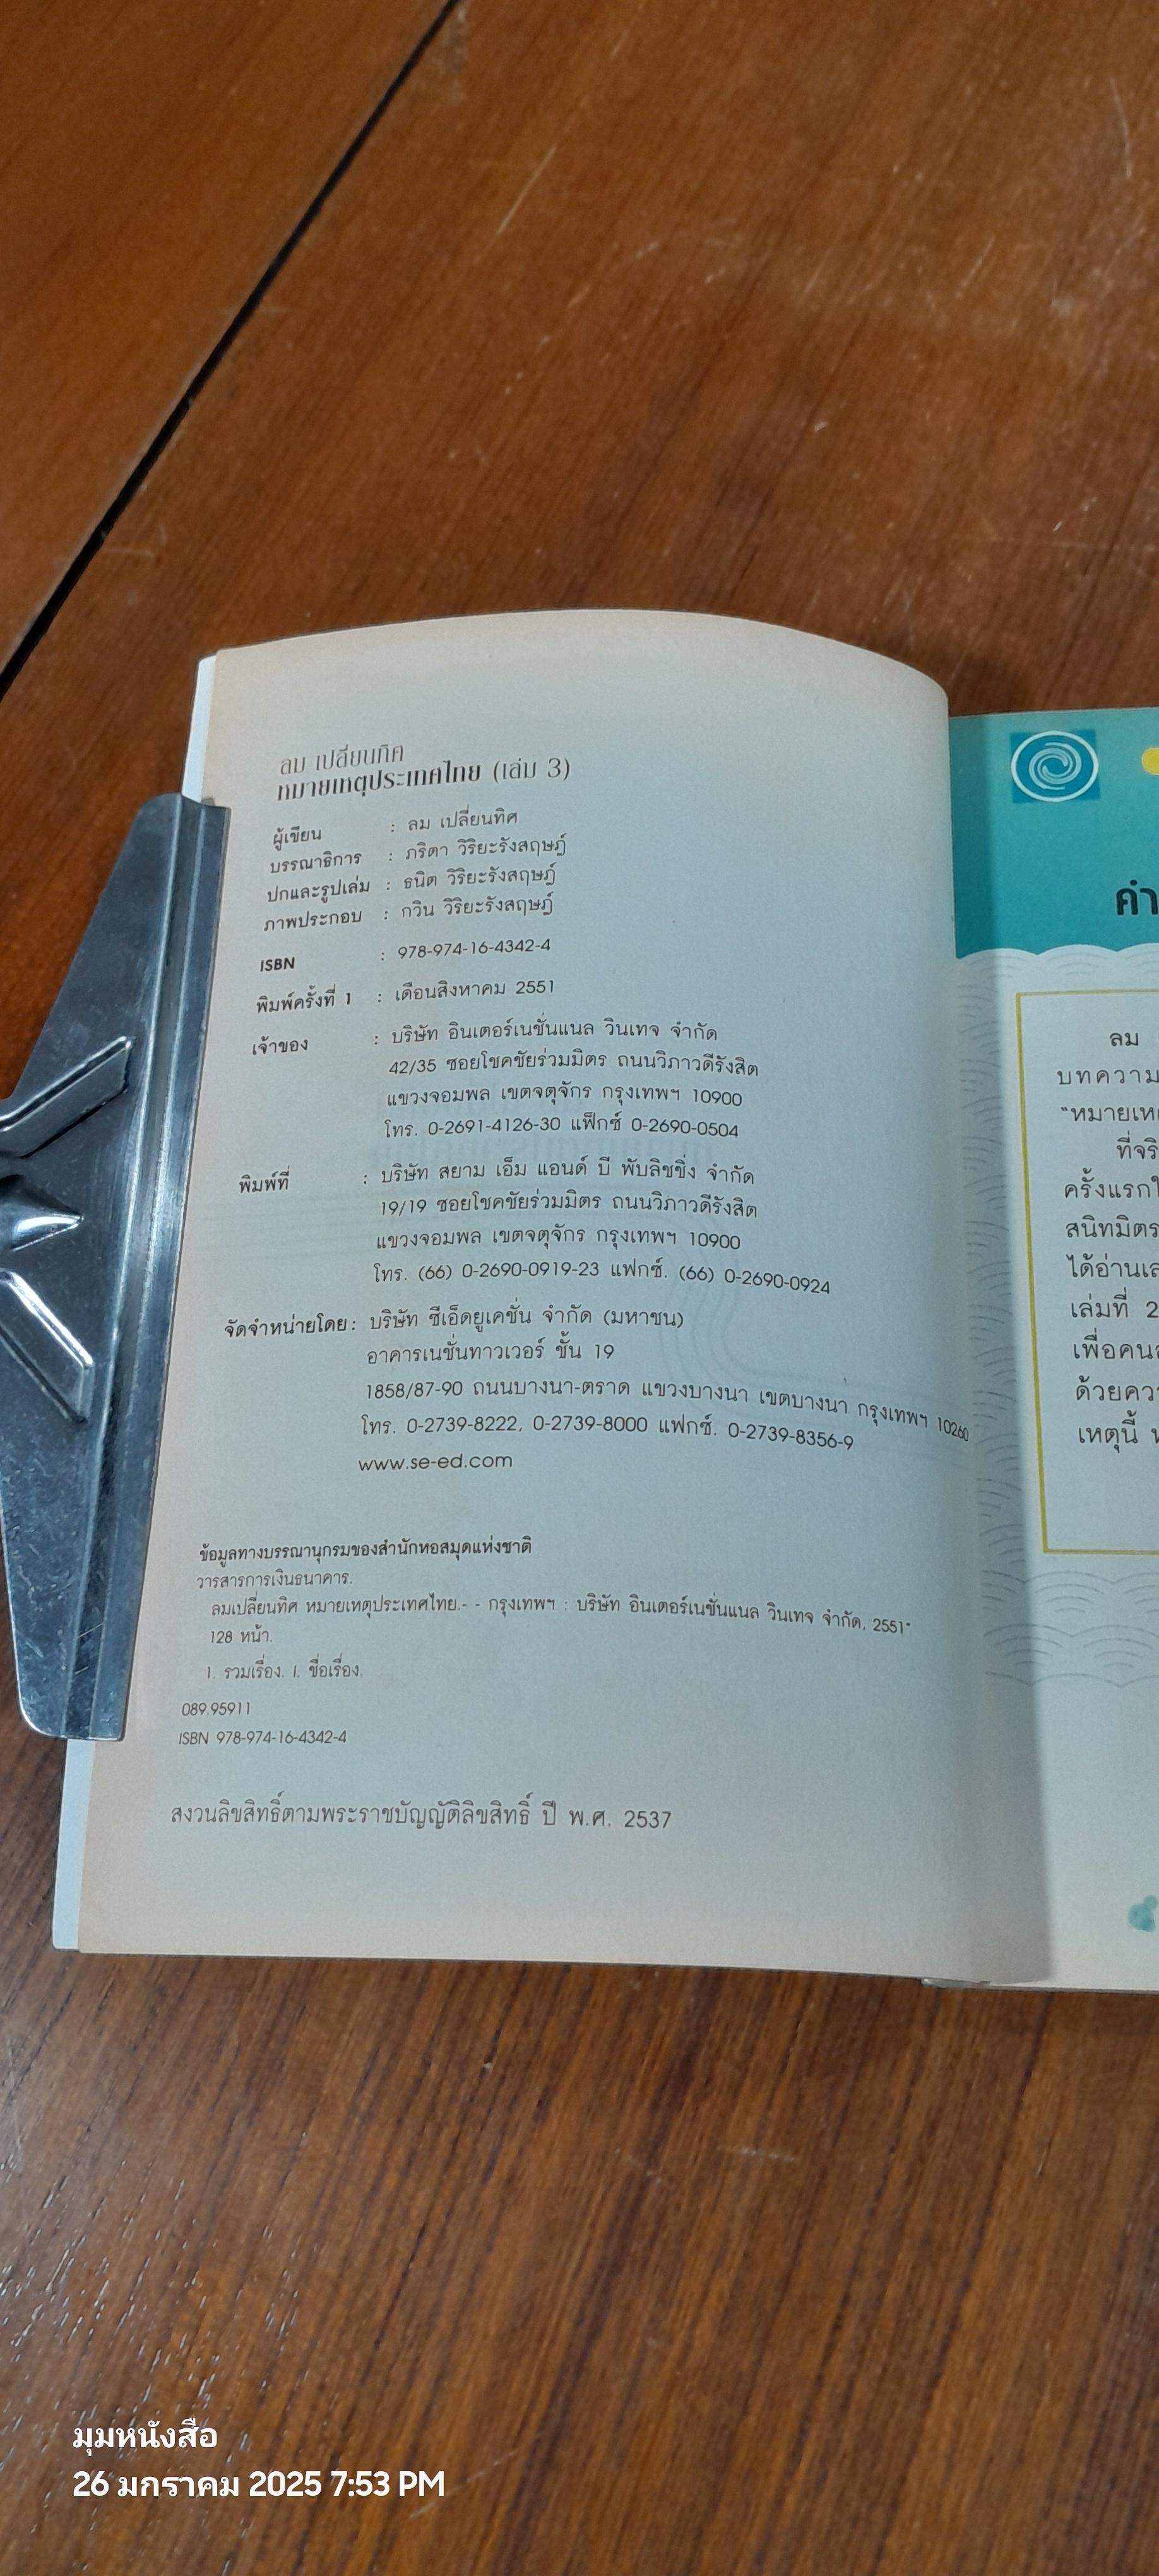 ลม เปลี่ยนทิศ
หมายเหตุประเทศไทย (เล่ม 3)
ผู้เขียน : ลม เปลี่ยนทิศ
บรรณาธิการ : ภริตา วิริยะรังสฤษฎ์
ปกและรูปเล่ม : ธนิต วิริยะรังสฤษฎ์
ภาพประกอบ : กวิน วิริยะรังสฤษฎ์
ISBN : 978-974-16-4342-4
พิมพ์ครั้งที่ 1 : เดือนสิงหาคม 2551
เจ้าของ : บริษัท อินเตอร์เนชั่นแนล วินเทจ จำกัด
42/35 ซอยโชคชัยร่วมมิตร ถนนวิภาวดีรังสิต
แขวงจอมพล เขตจตุจักร กรุงเทพฯ 10900
โทร. 0-2691-4126-30 แฟ็กซ์ 0-2690-0504
พิมพ์ที่ : บริษัท สยาม เอ็ม แอนด์ บี พับลิชชิ่ง จำกัด
19/19 ซอยโชคชัยร่วมมิตร ถนนวิภาวดีรังสิต
แขวงจอมพล เขตจตุจักร กรุงเทพฯ 10900
โทร. (66) 0-2690-0919-23 แฟกซ์. (66) 0-2690-0924
จัดจำหน่ายโดย : บริษัท ซีเอ็ดยูเคชั่น จำกัด (มหาชน)
อาคารเนชั่นทาวเวอร์ ชั้น 19
1858/87-90 ถนนบางนา-ตราด แขวงบางนา เขตบางนา กรุงเทพฯ 10260
โทร. 0-2739-8222, 0-2739-8000 แฟกซ์. 0-2739-8356-9
www.se-ed.com
ข้อมูลทางบรรณานุกรมของสำนักหอสมุดแห่งชาติ
วารสารการเงินธนาคาร.
ลมเปลี่ยนทิศ หมายเหตุประเทศไทย.- - กรุงเทพฯ : บริษัท อินเตอร์เนชั่นแนล วินเทจ จำกัด, 2551"
128 หน้า.
1. รวมเรื่อง. I. ชื่อเรื่อง.
089.95911
ISBN 978-974-16-4342-4
สงวนลิขสิทธิ์ตามพระราชบัญญัติลิขสิทธิ์ ปี พ.ศ. 2537
คำ
ลม
บทความ
"หมายเหต
ที่จริ
ครั้งแรกใ
สนิทมิตร
ได้อ่านเล
เล่มที่ 2
เพื่อคน
ด้วยคว
เหตุนี้
มุมหนังสือ
26 มกราคม 2025 7:53 PM